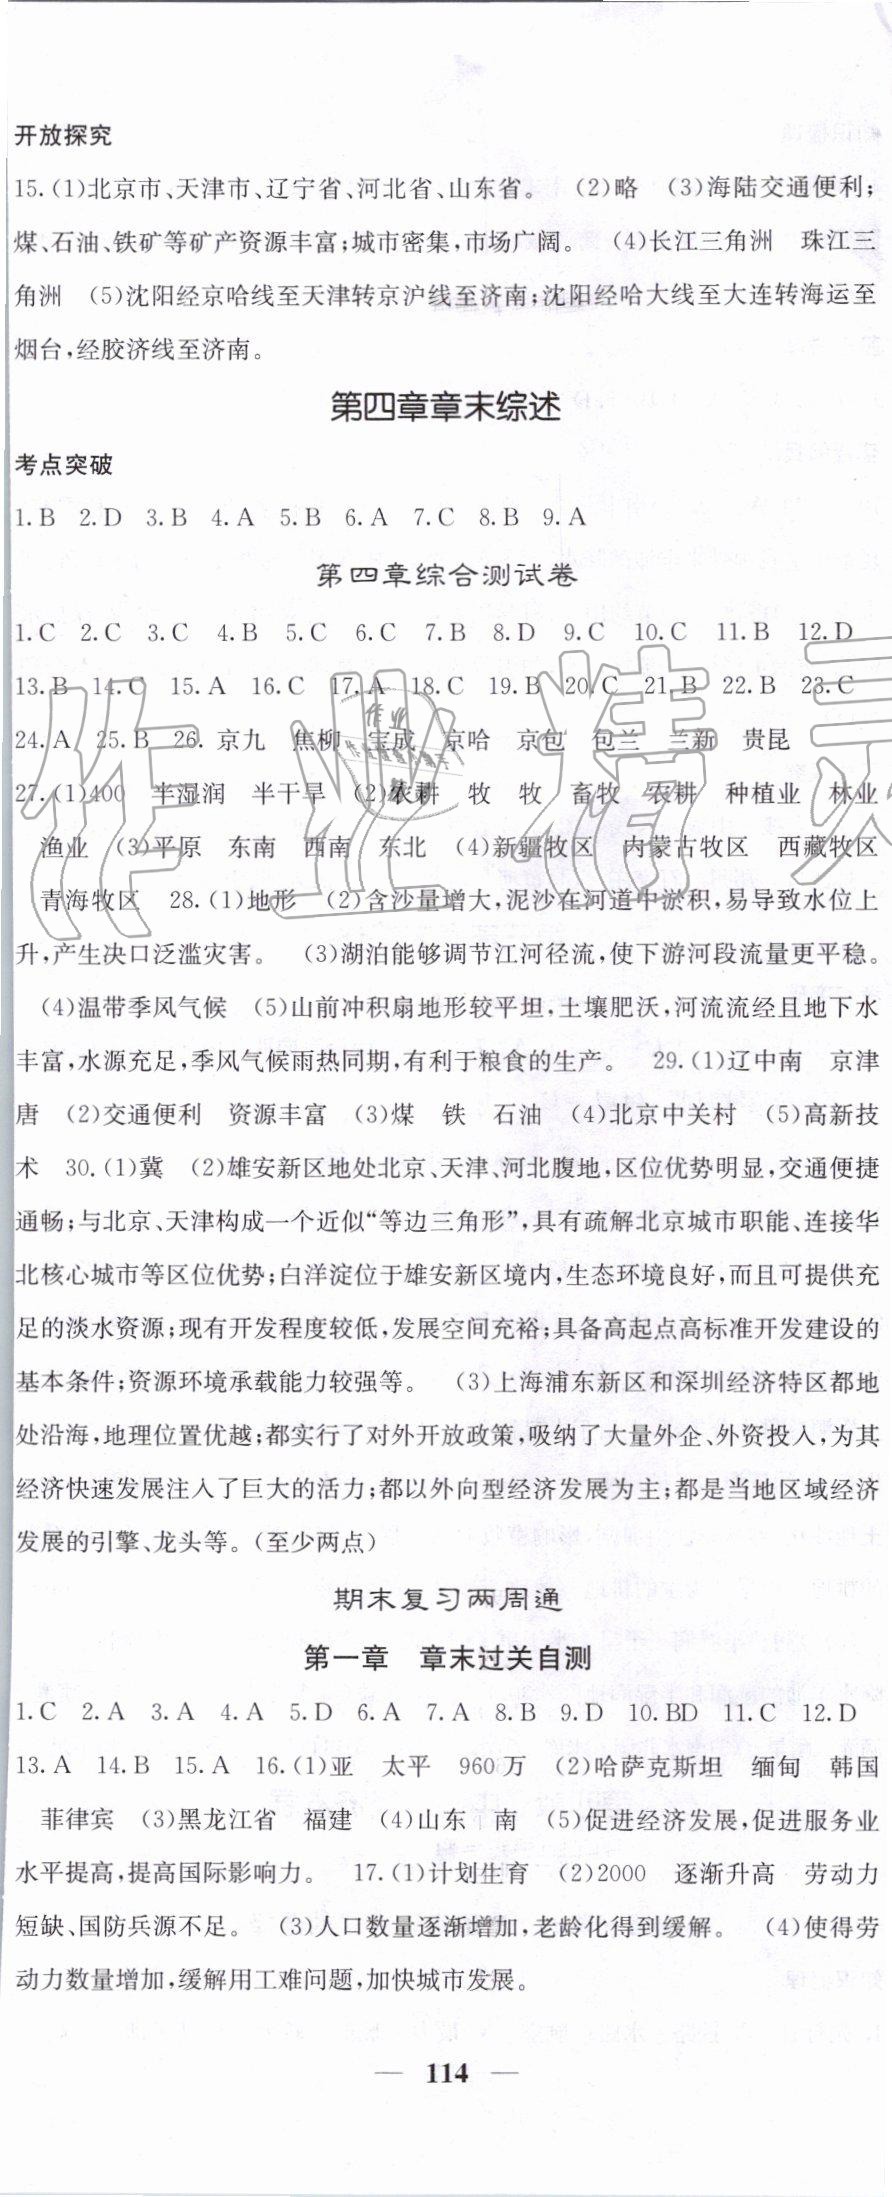 开放探究
15.(1)北京市、天津市、辽宁省、河北省、山东省。 (2)略 (3)海陆交通便利;
煤、石油、铁矿等矿产资源丰富;城市密集,市场广阔。 (4)长江三角洲 珠江三
角洲 (5)沈阳经京哈线至天津转京沪线至济南;沈阳经哈大线至大连转海运至
烟台,经胶济线至济南。
第四章章末综述
考点突破
1.B 2.D 3.B 4.A 5.B 6.A 7.C 8.B 9.A
第四章综合测试卷
1.C 2.C 3.C 4.B 5.C 6.C 7.B 8.D 9.C 10.C 11.B 12.D
13.B 14.C 15.A 16.C 17.A 18.C 19.B 20.C 21.B 22.B 23.C
24.A 25.B 26.京九 焦柳 宝成 京哈 京包 包兰 兰新 贵昆
27.(1)400 半湿润 半干旱 (2)农耕 牧 牧 畜牧 农耕 种植业 林业
渔业 (3)平原 东南 西南 东北 (4)新疆牧区 内蒙古牧区 西藏牧区
青海牧区 28.(1)地形 (2)含沙量增大,泥沙在河道中淤积,易导致水位上
升,产生决口泛滥灾害。 (3)湖泊能够调节江河径流,使下游河段流量更平稳。
(4)温带季风气候 (5)山前冲积扇地形较平坦,土壤肥沃,河流流经且地下水
丰富,水源充足,季风气候雨热同期,有利于粮食的生产。 29.(1)辽中南 京津
唐 (2)交通便利 资源丰富 (3)煤 铁 石油 (4)北京中关村 (5)高新技
术 30.(1)冀 (2)雄安新区地处北京、天津、河北腹地,区位优势明显,交通便捷
通畅;与北京、天津构成一个近似“等边三角形”,具有疏解北京城市职能、连接华
北核心城市等区位优势;白洋淀位于雄安新区境内,生态环境良好,而且可提供充
足的淡水资源;现有开发程度较低,发展空间充裕;具备高起点高标准开发建设的
基本条件;资源环境承载能力较强等。 (3)上海浦东新区和深圳经济特区都地
处沿海,地理位置优越;都实行了对外开放政策,吸纳了大量外企、外资投入,为其
经济快速发展注入了巨大的活力;都以外向型经济发展为主;都是当地区域经济
发展的引擎、龙头等。(至少两点)
期末复习两周通
第一章 章末过关自测
1.C 2.A 3.A 4.A 5.D 6.A 7.A 8.B 9.D 10.BD 11.C 12.D
13.A 14.B 15.A 16.(1)亚 太平 960万 (2)哈萨克斯坦 缅甸 韩国
菲律宾 (3)黑龙江省 福建 (4)山东 南 (5)促进经济发展,促进服务业
水平提高,提高国际影响力。 17.(1)计划生育 (2)2000 逐渐升高 劳动力
短缺、国防兵源不足。 (3)人口数量逐渐增加,老龄化得到缓解。 (4)使得劳
动力数量增加,缓解用工难问题,加快城市发展。
— 114 —
作业精灵